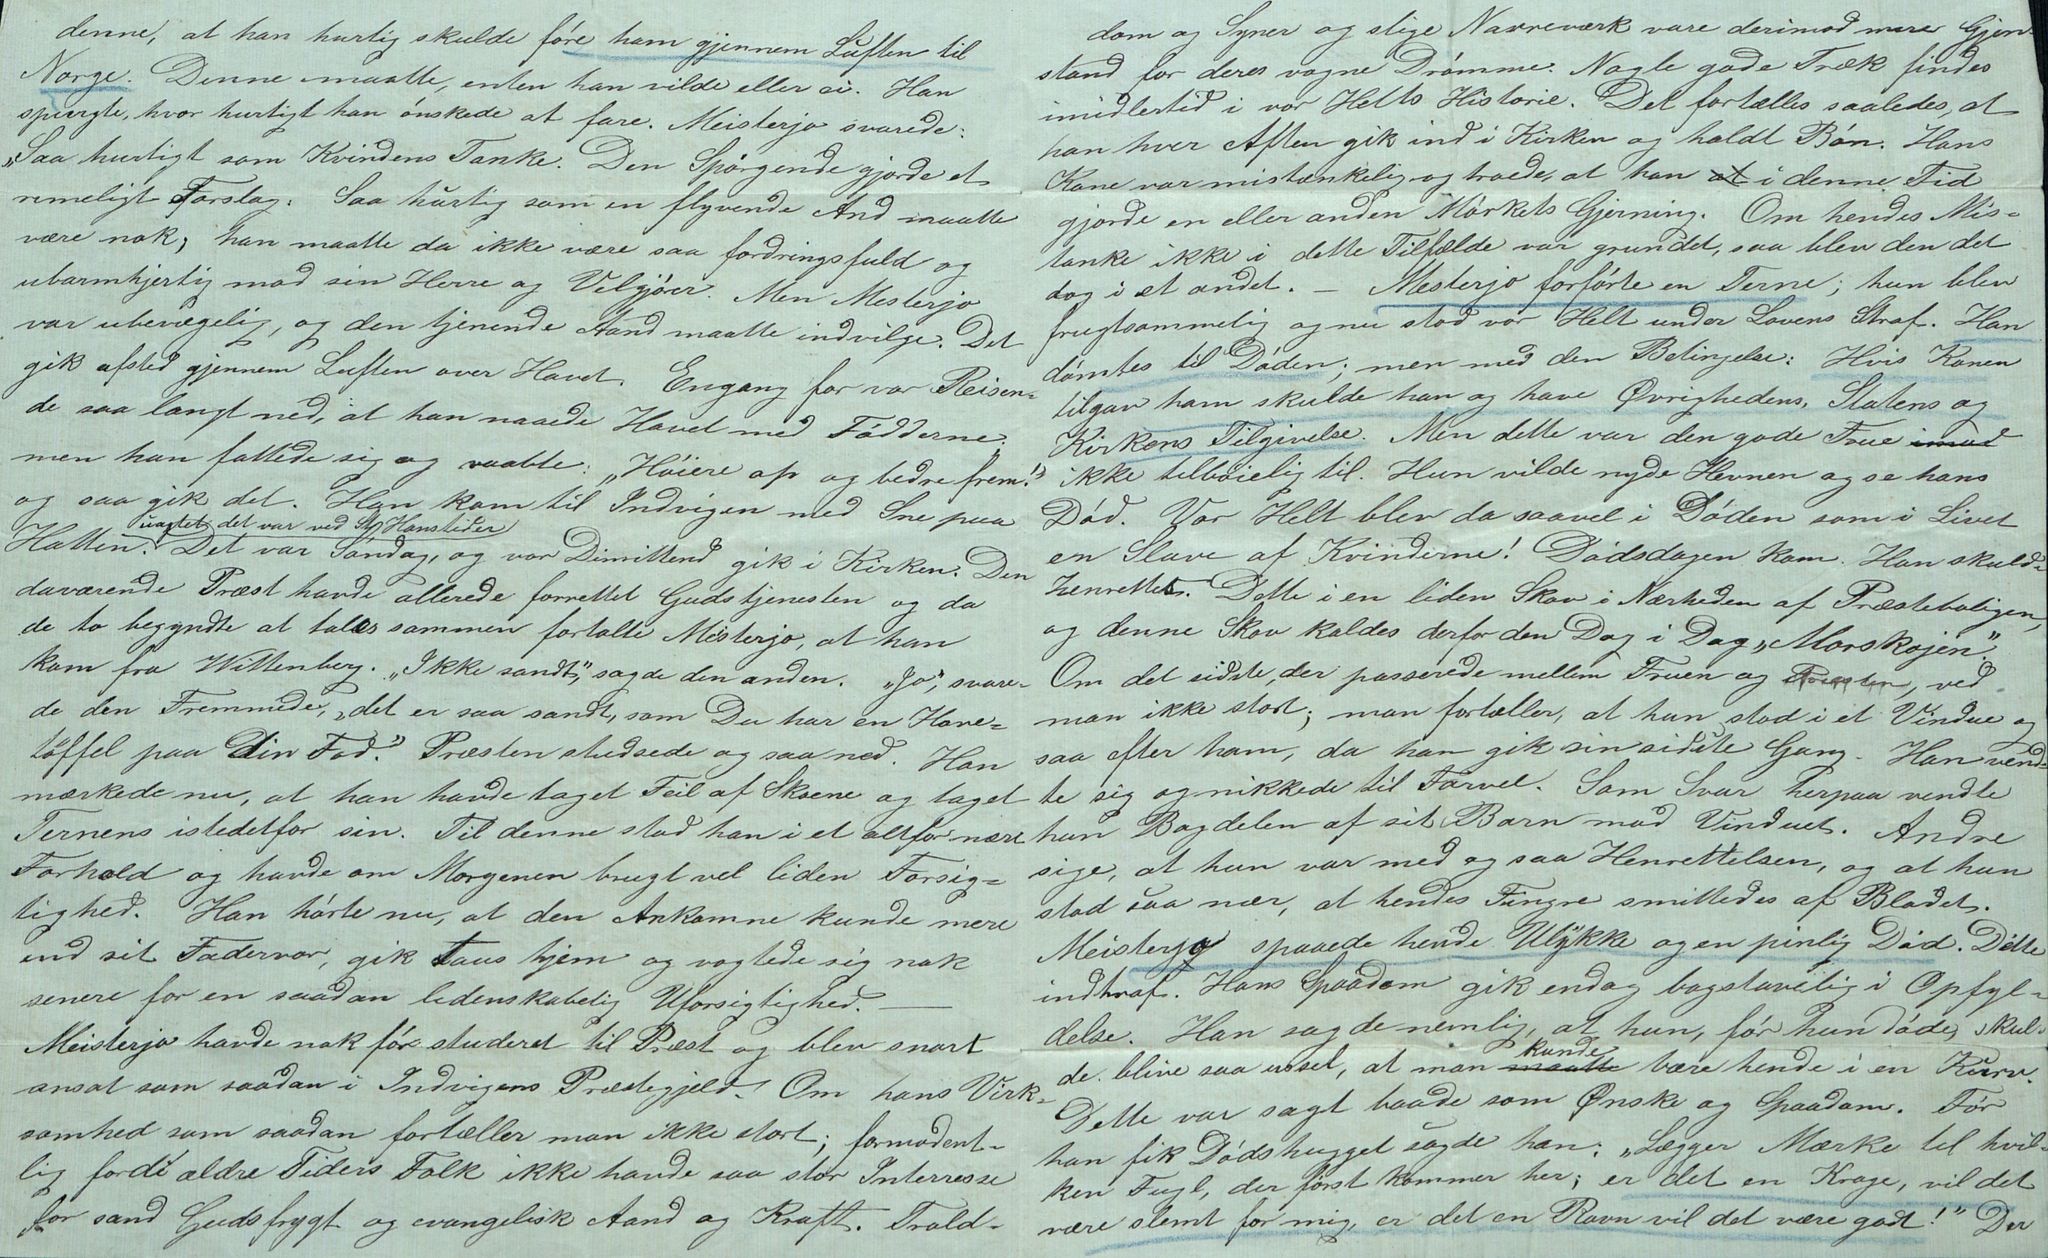 denne, at han hurtig skulde före ham gjennem Luften til
Norge. Denne maatte, enten han vilde eller ei. Han
spurgte, hvor hurtigt han önskede at fare. Meisterjo svarede:
„Saa hurtigt som Kvindens Tanke. Den Spörgende gjorde et
rimeligt Forslag. Saa hurtig som en flyvende And maatte
være nok; han maatte da ikke være saa fordringsfuld og
ubarmhjertig mod sin Herre og Velgjöer. Men Mesterjo
var ubevægelig, og den tjenende Aand maatte indvilge. Det
gik afsted gjennem Luften over Havet. Engang for vor Reisen-
de saa langt ned, at han naaede Havet med Födderne;
men han fattede sig og raabte: „Höiere op og bedre frem!"
og saa gik det. Han kom til Indvigen med Sne paa
uagtet det var ved St Hanstider
Hatten. Det var Söndag, og vor Dimittend gik i Kirken. Den
daværende Præst havde allerede forrettet Gudstjenesten og da
de to begyndte at tales sammen fortalte Misterjo, at han
kom fra Wittenberg. „Ikke sandt", sagde den anden. „Jo", svare-
de den Fremmede, „det er saa sandt, som Du har en Hone-
töffel paa Din Fod." Præsten studsede og saa ned. Han
mærkede nu, at han havde taget Feil af Skoene og taget
Ternens istedetfor sin. Til denne stod han i et altfor nære
Forhold og havde om Morgenen brugt vel liden Forsig-
tighed. Han hörte nu, at den Ankomne kunde mere
end sit Fadervor, gik taus hjem og vogtede sig nok
senere for en saadan lidenskabelig Uforsigtighed. —
Meisterjo havde nok för studeret til Præst og blev snart
ansat som saadan i Indvigens Præstegjeld. Om hans Virk-
somhed som saadan fortæller man ikke stort; formodent-
lig fordi ældre Tiders Folk ikke havde saa stor Interresse
for sand Gudsfrygt og evangelisk Aand og Kraft. Trold-
dom og Syner og slige Narreværk vare derimod mere Gjen-
stand for deres vagne Drömme. Nogle gode Træk findes
imidlertid i vor Helts Historie. Det fortælles saaledes, at
han hver Aften gik ind i Kirken og holdt Bön. Hans
Kone var mistænkelig og troede, at han at i denne Tid
gjorde en eller anden Mörkets Gjerning. Om hendes Mis-
tanke ikke i dette Tilfælde var grundet, saa blev den det
dog i et andet. — Mesterjo forförte en Terne; hun blev
frugtsommelig og nu stod vor Helt under Lovens Straf. Han
dömtes til Döden; men med den Betingelse: Hvis Konen
tilgav ham skulde han og have Øvrighedens, Statens og
Kirkens Tilgivelse. Men dette var den gode Frue imod
ikke tilböielig til. Hun vilde nyde Hevnen og se hans
Död. Vor Helt blev da saavel i Döden som i Livet
en Slave af Kvinderne! Dödsdagen kom. Han skuld-
henrettes. Dette i en liden Skov i Nærheden af Præsteboligen,
og denne Skov kaldes derfor den Dag i Dag „Morskojen".
Om det sidste, der passerede mellem Fruen og Præsten, ved
man ikke stort; man fortæller, at hun stod i et Vindue og
saa efter ham, da han gik sin sidste Gang. Han vend-
te sig og nikkede til Farvel. Som Svar herpaa vendte
hun Bagdelen af sit Barn mod Vinduet. Andre
sige, at hun var med og saa Henrettelsen, og at hun
stod saa nær, at hendes Fingre smittedes af Blodet.
Meisterjo spaaede hende Ulykke og en pinlig Död. Dette
indtraf. Hans Spaadom gik endog bogstavelig i Opfyl-
delse. Han sagde nemlig, at hun, för hun döde, skul-
kunde
de blive saa ussel, at man maatte bære hende i en Kurv.
Dette var sagt baade som Ønske og Spaadom. För
han fik Dödshugget sagde han: „Lægger Mærke til hvil-
ken Fugl, der först kommer her; er det en Krage, vil det
være slemt for mig, er det en Ravn vil det være godt!" Der